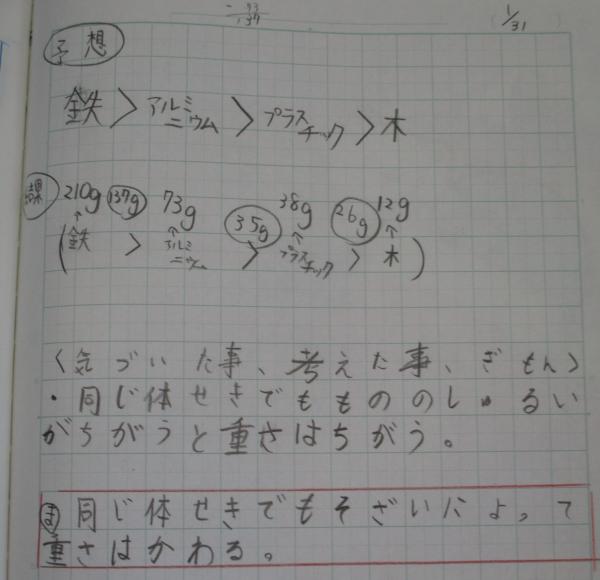 - 73
137
1/31
予想
鉄 > アルミニウム > プラスチック > 木
結果 210g 137g 73g 35g 38g 26g 12g
(鉄 > アルミニウム > プラスチック > 木)
〈気づいた事、考えた事、ぎもん〉
・同じ体せきでももののしゅるい
がちがうと重さはちがう。
ま 同じ体せきでもそざいによって
重さはかわる。